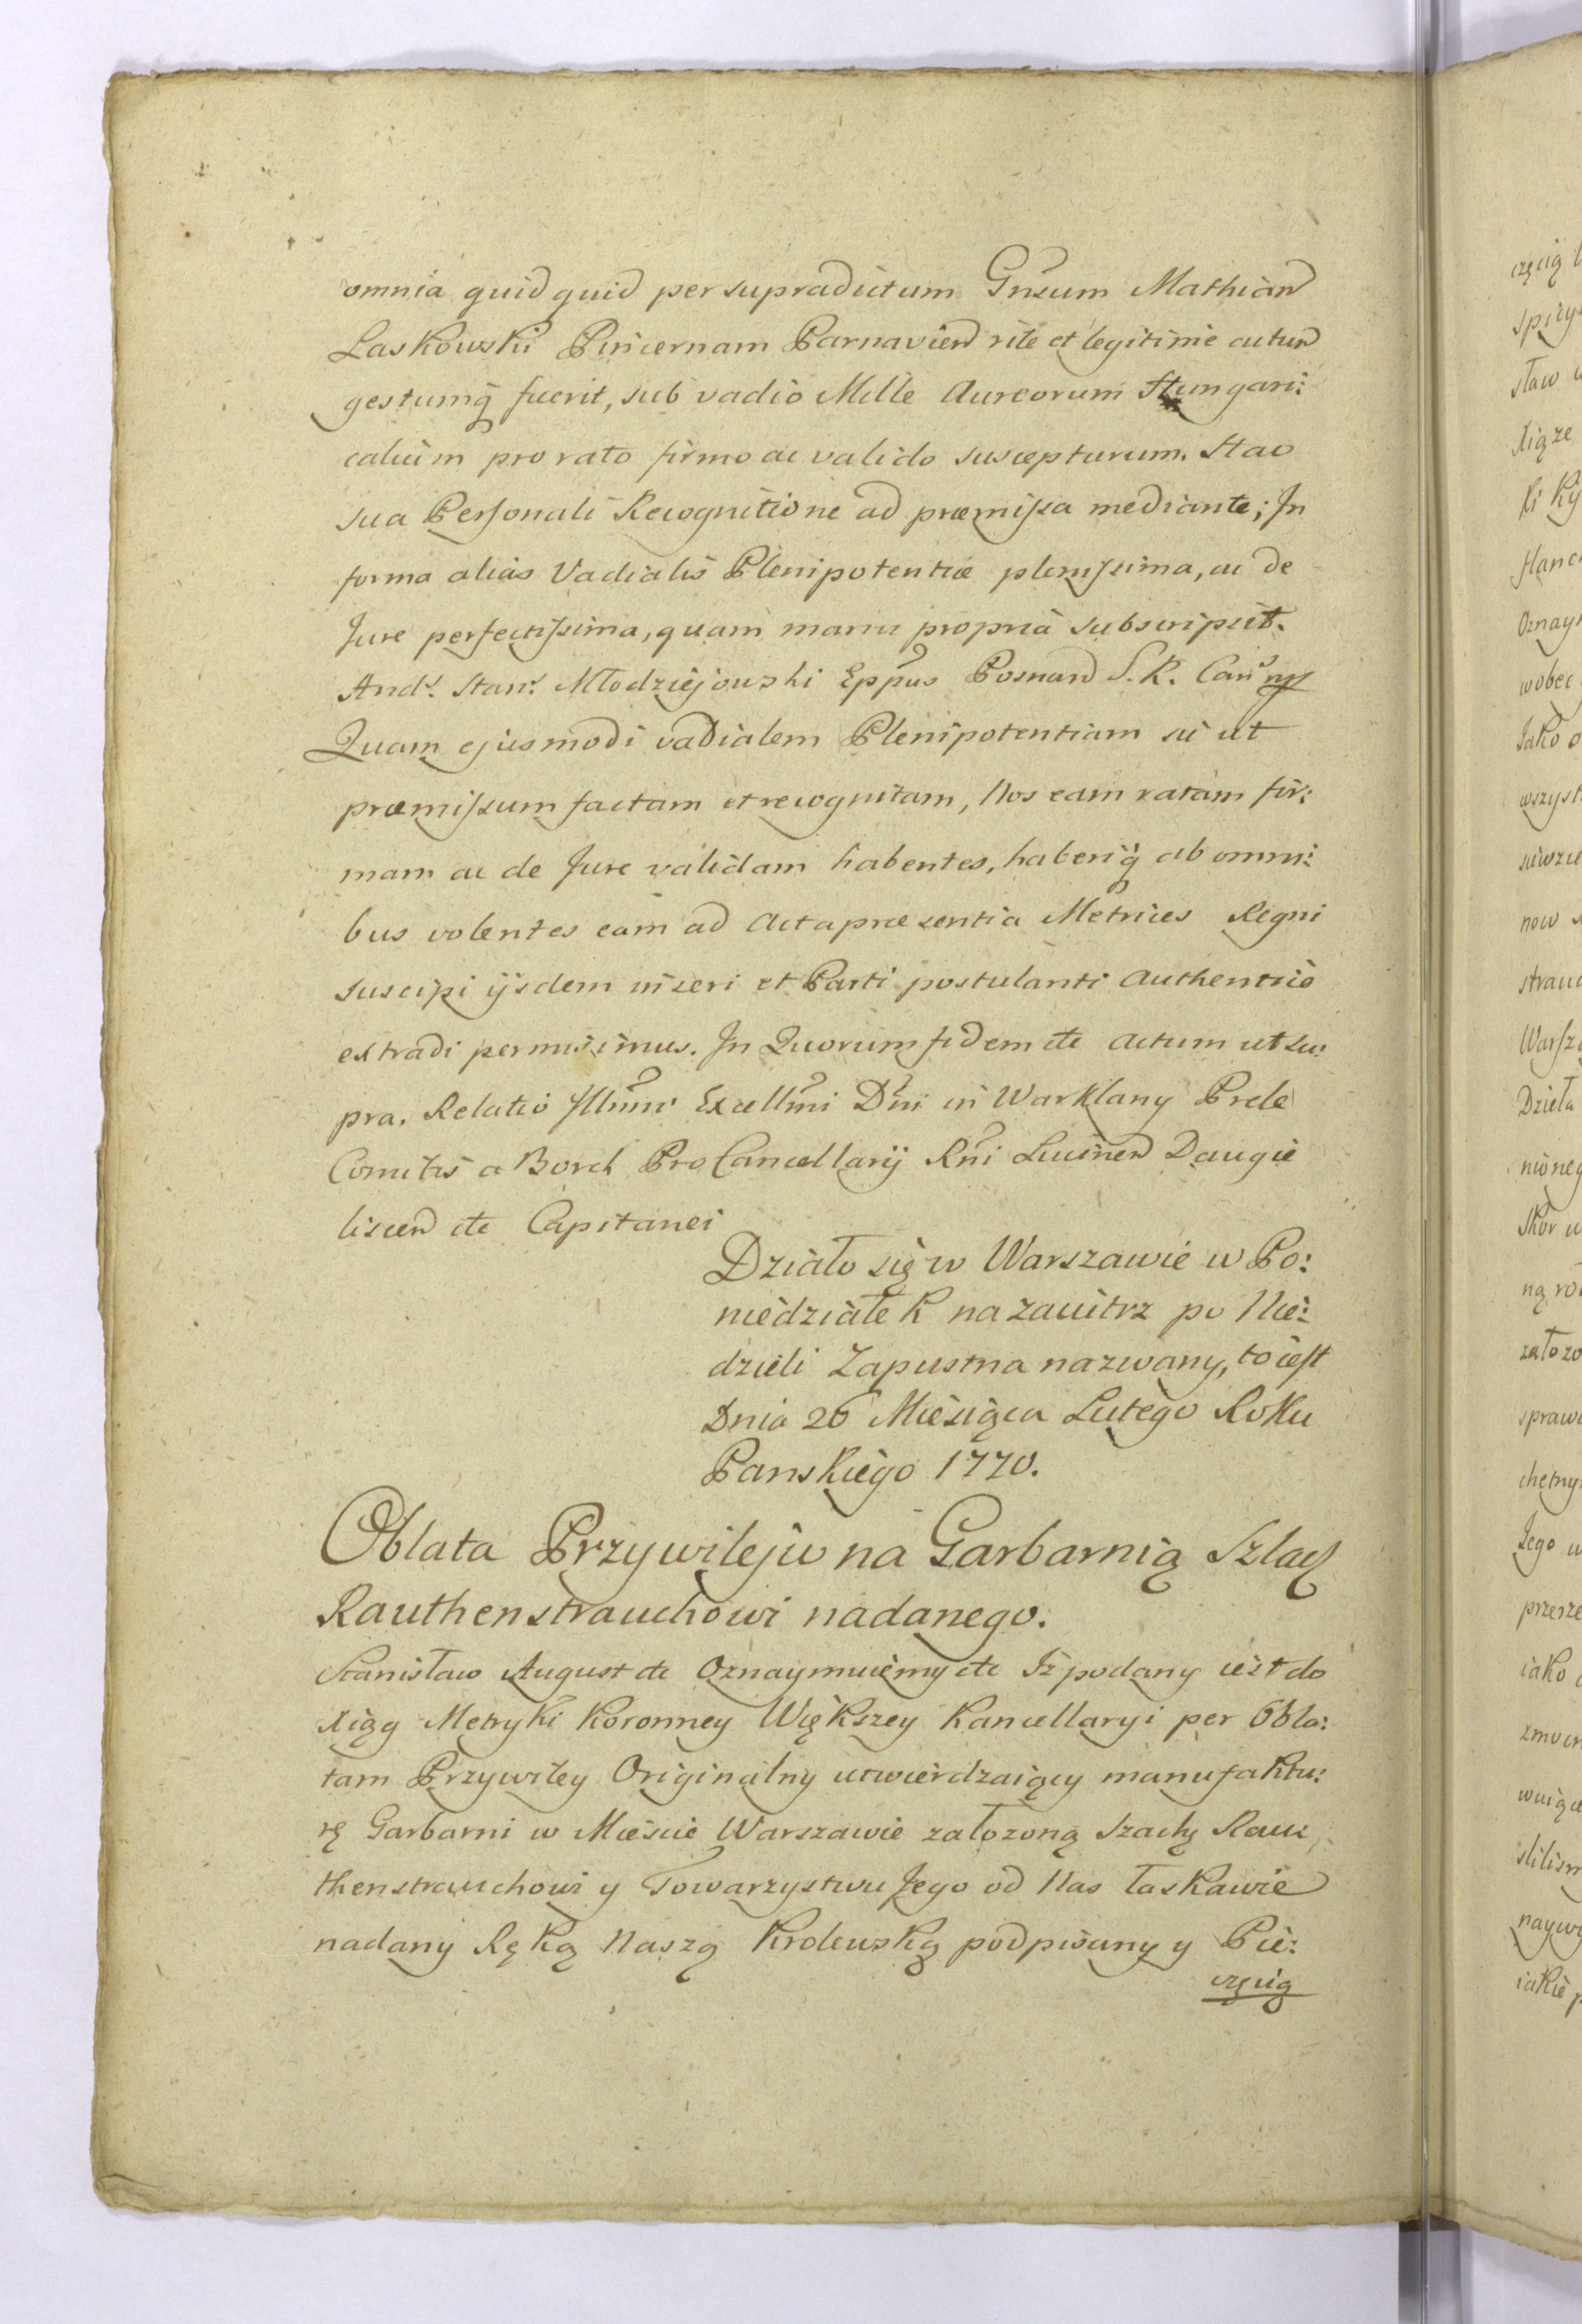 omnia quidquid per supradictum Gnsum Mathian
Laskowski Pincernam Parnavien rite et legitime actum
gestumq fuerit, sub vadio Mille Aureorum Hungari:
calium pro rato firmo ac valido suscepturum. Hac
sua Personali Recognitione ad præmissa mediante; In
forma alias Vadialis Plenipotentiæ plenissima, ac de
Jure perfectissima, quam manu propria subscripsit.
And. Stan. Młodziejowski Eppus Posnan S. R. Can
Quam ejusmodi vadialem Plenipotentiam sic ut
præmissum factam et recognitam, Nos eam ratam fir:
mam ac de Jure validam habentes, haberiq ab omni:
bus volentes eam ad Acta præsentia Metrices Regni
suscipi ijsdem inseri et Parti postulanti Authentico
extradi permisimus. In Quorum fidem etc Actum ut su:
pra. Relatio Illmi Excellmi Dni in Warklany Prele
Comitis a Borch Pro Cancellarij Rni Lucinen Daugie
liscen etc Capitanei
Działo się w Warszawie w Po:
niedziałek nazauitrz po Nie:
dzieli Zapustna nazwany, to iest
Dnia 26 Miesiąca Lutego Roku
Panskiego 1770.
Oblata Przywileju na Garbarnią Szlach
Rauthenstrauchowi nadanego.
Stanisław August etc Oznaymuiemy etc Iż podany iest do
xiąg Metryki Koronney Większey Kancellaryi per Obla:
tam Przywiley Originalny utwierdzaiący manufaktu:
rę Garbarni w Miescie Warszawie załozoną Szachę Rau
thenstrauchowi y Towarzystwu Jego od Nas łaskawie
nadany Ręką Naszą Krolewską podpisany y Pie:
częcią